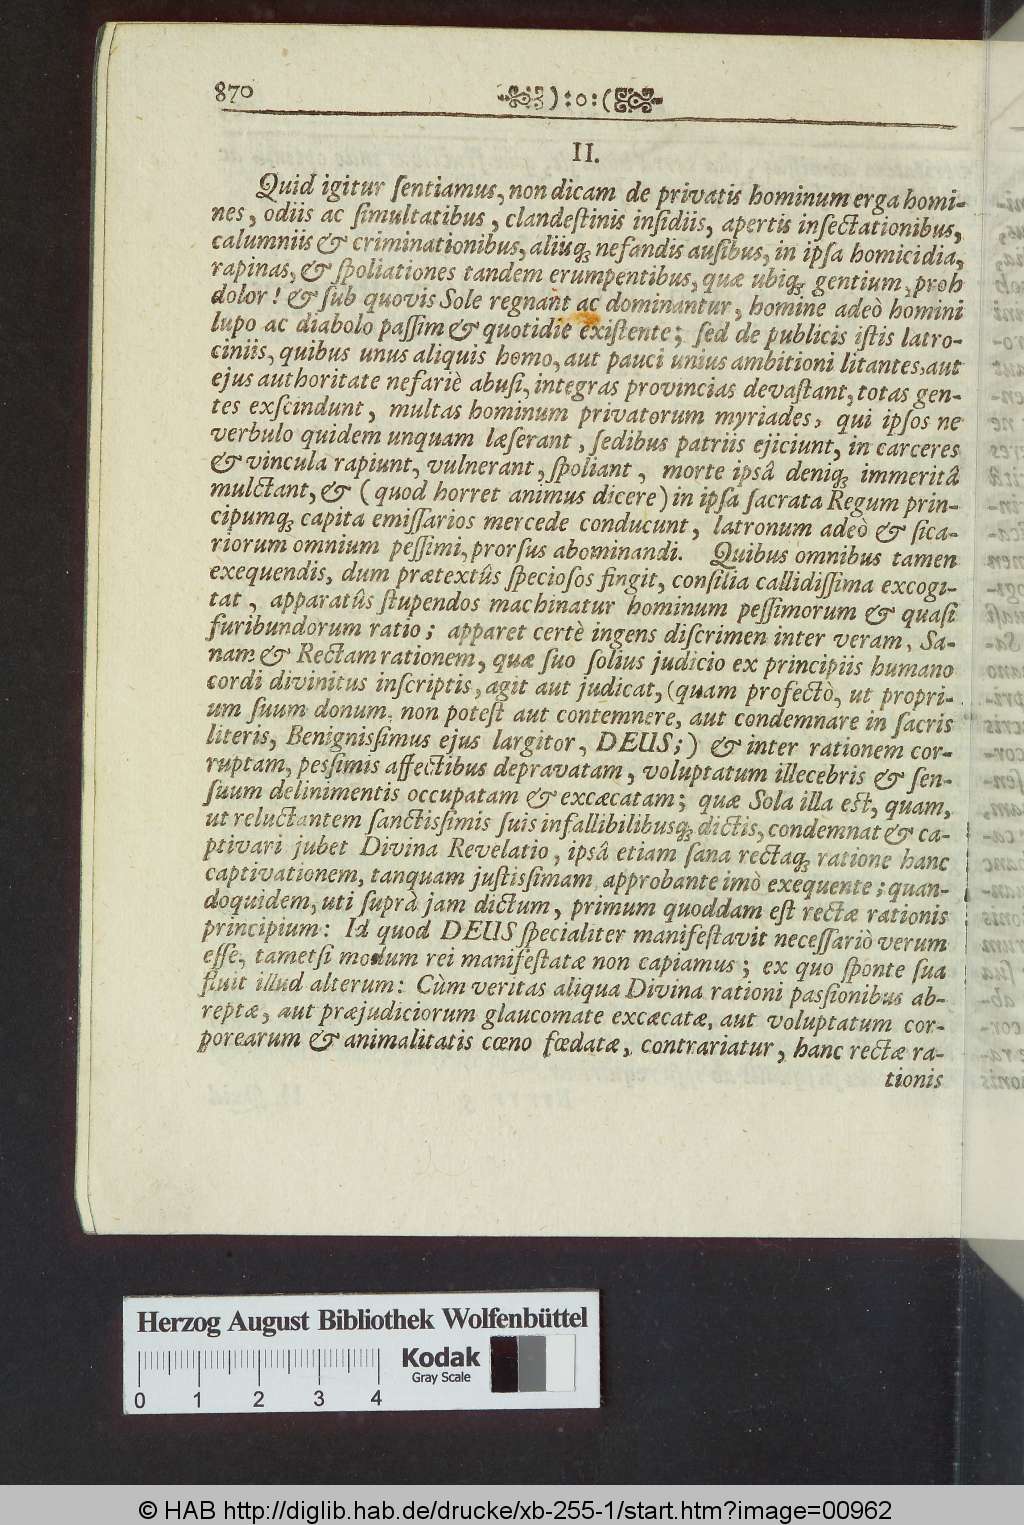 870 ):o:(
II.
Quid igitur ſentiamus, non dicam de privatis hominum erga homi-
nes, odiis ac ſimultatibus, clandeſtinis inſidiis, apertis inſectationibus,
calumniis & criminationibus, aliisq; nefandis auſibus, in ipſa homicidia,
rapinas, & ſpoliationes tandem erumpentibus, quæ ubiq; gentium, proh
dolor! & ſub quovis Sole regnant ac dominantur, homine adeò homini
lupo ac diabolo paſſim & quotidie exiſtente; ſed de publicis iſtis latro-
ciniis, quibus unus aliquis homo, aut pauci unius ambitioni litantes, aut
ejus authoritate nefariè abuſi, integras provincias devaſtant, totas gen-
tes exſcindunt, multas hominum privatorum myriades, qui ipſos ne
verbulo quidem unquam læſerant, ſedibus patriis ejiciunt, in carceres
& vincula rapiunt, vulnerant, ſpoliant, morte ipsâ deniq; immeritâ
mulctant, & (quod horret animus dicere) in ipſa ſacrata Regum prin-
cipumq; capita emiſſarios mercede conducunt, latronum adeò & ſica-
riorum omnium peſſimi, prorſus abominandi. Quibus omnibus tamen
exequendis, dum prætextûs ſpecioſos fingit, conſilia callidiſſima excogi-
tat, apparatûs ſtupendos machinatur hominum peſſimorum & quaſi
furibundorum ratio; apparet certè ingens diſcrimen inter veram, Sa-
nam & Rectam rationem, quæ ſuo ſolius judicio ex principiis humano
cordi divinitus inſcriptis, agit aut judicat, (quam profectò, ut propri-
um ſuum donum, non poteſt aut contemnere, aut condemnare in ſacris
literis, Benigniſsimus ejus largitor, DEUS;) & inter rationem cor-
ruptam, peſsimis affectibus depravatam, voluptatum illecebris & ſen-
ſuum delinimentis occupatam & excæcatam; quæ Sola illa eſt, quam,
ut reluctantem ſanctiſsimis ſuis infallibilibusq; dictis, condemnat & ca-
ptivari jubet Divina Revelatio, ipsâ etiam ſana rectaq; ratione hanc
captivationem, tanquam juſtiſsimam approbante imò exequente; quan-
doquidem, uti ſuprà jam dictum, primum quoddam eſt rectæ rationis
principium: Id quod DEUS ſpecialiter manifeſtavit neceſſariò verum
eſſe, tametſi modum rei manifeſtatæ non capiamus; ex quo ſponte ſua
fluit illud alterum: Cùm veritas aliqua Divina rationi paſsionibus ab-
reptæ, aut præjudiciorum glaucomate excæcatæ, aut voluptatum cor-
porearum & animalitatis cœno fœdatæ, contrariatur, hanc rectæ ra-
tionis
Herzog August Bibliothek Wolfenbüttel
Kodak
Gray Scale
0 1 2 3 4
© HAB http://diglib.hab.de/drucke/xb-255-1/start.htm?image=00962